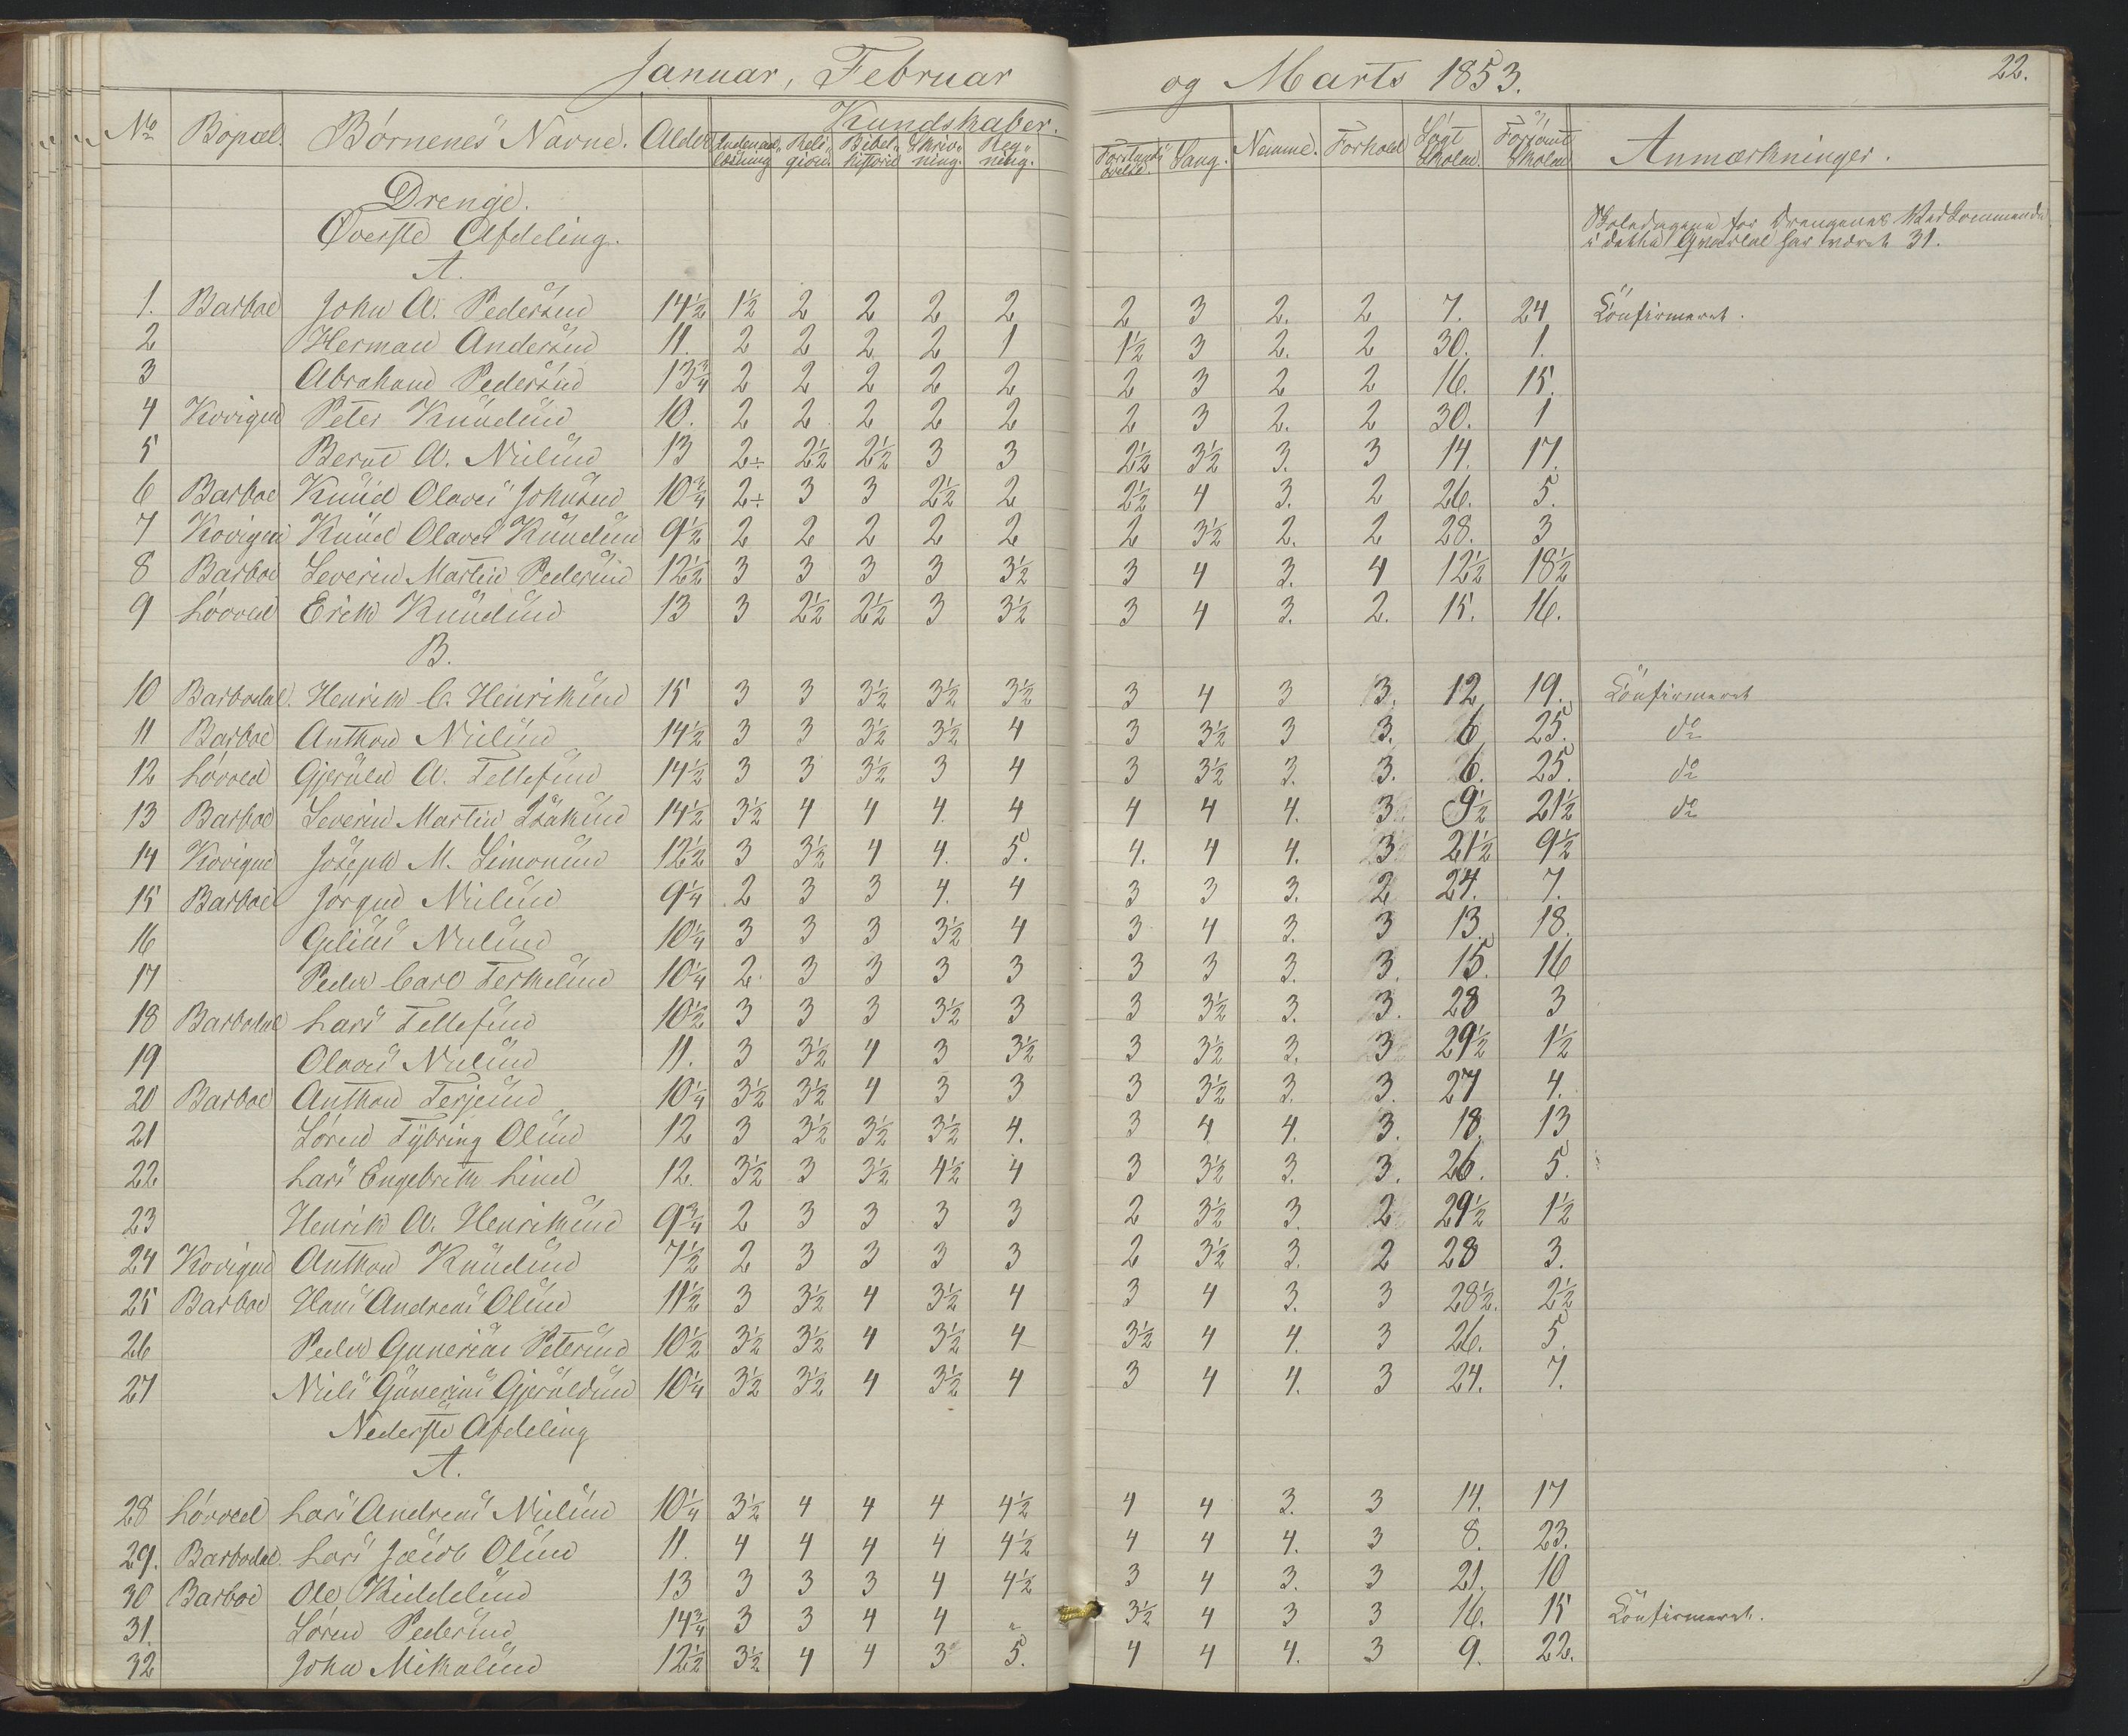 Januar, Februar og Marts 1853. 22.
No Bopæl. Børnenes Navne. Alder Kundskaber. Indenad-læsning Reli-gion. Bibel-historie Skriv-ning. Reg-ning. Forstands-øvelse. Sang. Nemme. Forhold Søgt Skolen. Forsømt Skolen Anmærkninger.
Drenge.
Øverste Afdeling.
Skoledagene for Drengenes Vedkommende
i dette Qvartal har været 31.
A.
1. Barboe John A. Pedersen 14½ 1½ 2 2 2 2 2 3 2. 2 7. 24 Confirmeret.
2 Herman Andersen 11. 2 2 2 2 1 1½ 3 2. 2 30. 1.
3 Abraham Pedersen 13¾ 2 2 2 2 2 2 3 2 2 16. 15.
4 Kovigen Peter Knudsen 10. 2 2 2 2 2 2 3 2. 2 30. 1
5 Bernt A. Nielsen 13 2÷ 2½ 2½ 3 3 2½ 3½ 3. 3 14. 17.
6 Barboe Knud Olaves Johnsen 10¾ 2÷ 3 3 2½ 2 2½ 4 3. 2 26. 5.
7 Kovigen Knud Olaves Knudsen 9½ 2 2 2 2 2 2 3½ 2. 2 28. 3
8 Barboe Severin Martin Pedersen 12½ 3 3 3 3 3½ 3 4 3. 4 12½ 18½
9 Løvved Erik Knudsen 13 3 2½ 2½ 3 3½ 3 4 3. 2. 15. 16.
B.
10 Barbodal. Henrik C. Henriksen 15 3 3 3½ 3½ 3½ 3 4 3 3. 12 19. Confirmeret
11 Barboe Anthon Nielsen 14½ 3 3 3½ 3½ 4 3 3½ 3 3. 6 25. do
12 Løvved Gjeruld A. Tellefsen 14½ 3 3 3½ 3 4 3 3½ 3. 3. 6. 25. do
13 Barboe Severin Martin Isaksen 14½ 3½ 4 4 4. 4 4 4 4. 3 9½ 21½ do
14 Kovigen Joseph M. Simonsen 12½ 3 3½ 4 4. 5. 4. 4 4. 3 21½ 9½
15 Barboe Jørgen Nielsen 9¼ 2 3 3 4. 4 3 3 3. 2 24. 7.
16 Nielsen 10¼ 3 3 3 3½ 4 3 4 3. 3 13. 18.
17 Peder Carl Terkelsen 10¼ 2. 3 3 3 3 3 3 3. 3. 15. 16
18 Barbodal Lars Tellefsen 10½ 3 3 3 3½ 3 3 3½ 3. 3. 28 3
19 Olaves Nielsen 11. 3 3½ 4 3 3½ 3 3½ 3. 3 29½ 1½
20 Barboe Anthon Terjesen 10¼ 3½ 3½ 4 3 3 3 3½ 3. 3. 27 4.
21 Søren Tybring Olsen 12 3 3½ 3½ 3½ 4. 3 4 4. 3. 18. 13
22 Lars Engebreth Lind 12. 3½ 3 3½ 4½ 4 3 3½ 3. 3. 26. 5.
23 Henrik A. Henriksen 9¾ 2 3 3 3 3 2 3½ 3. 2 29½ 1½
24 Kovigen Anthon Knudsen 7½ 2 3 3 3 3 2 3½ 3. 2 28 3.
25 Barboe Hans Andreas Olsen 11½ 3 3½ 4 3½ 4 3 4 3. 3 28½. 2½
26 Peder Gunerius Petersen 10½ 3½ 3½ 4 3½ 4 3½ 4 4. 3 26. 5.
27 Niels Gunerius Gjeruldsen 10¼ 3½ 3½ 4 3½ 4 3 4 4. 3 24. 7.
Nederste Afdeling
A.
28 Løvved Lars Andreas Nielsen 10¼ 3½ 4 4 4 4½ 4 4 3. 3 14. 17
29. Barbodal. Lars Jacob Olsen 11. 4 4 4 4 4½ 4 4 4. 3 8. 23.
30 Barboe Ole Kiddelsen 13 3 3 3 4 4½ 3 4 3. 3 21. 10
31. Søren Pedersen 14¾ 3 3 4 4 " 3½ 4 3 3 16. 15 Confirmeret.
32 John Mikalsen 12½ 3½ 4 4 3 5. 4 4 4. 3 9. 22.